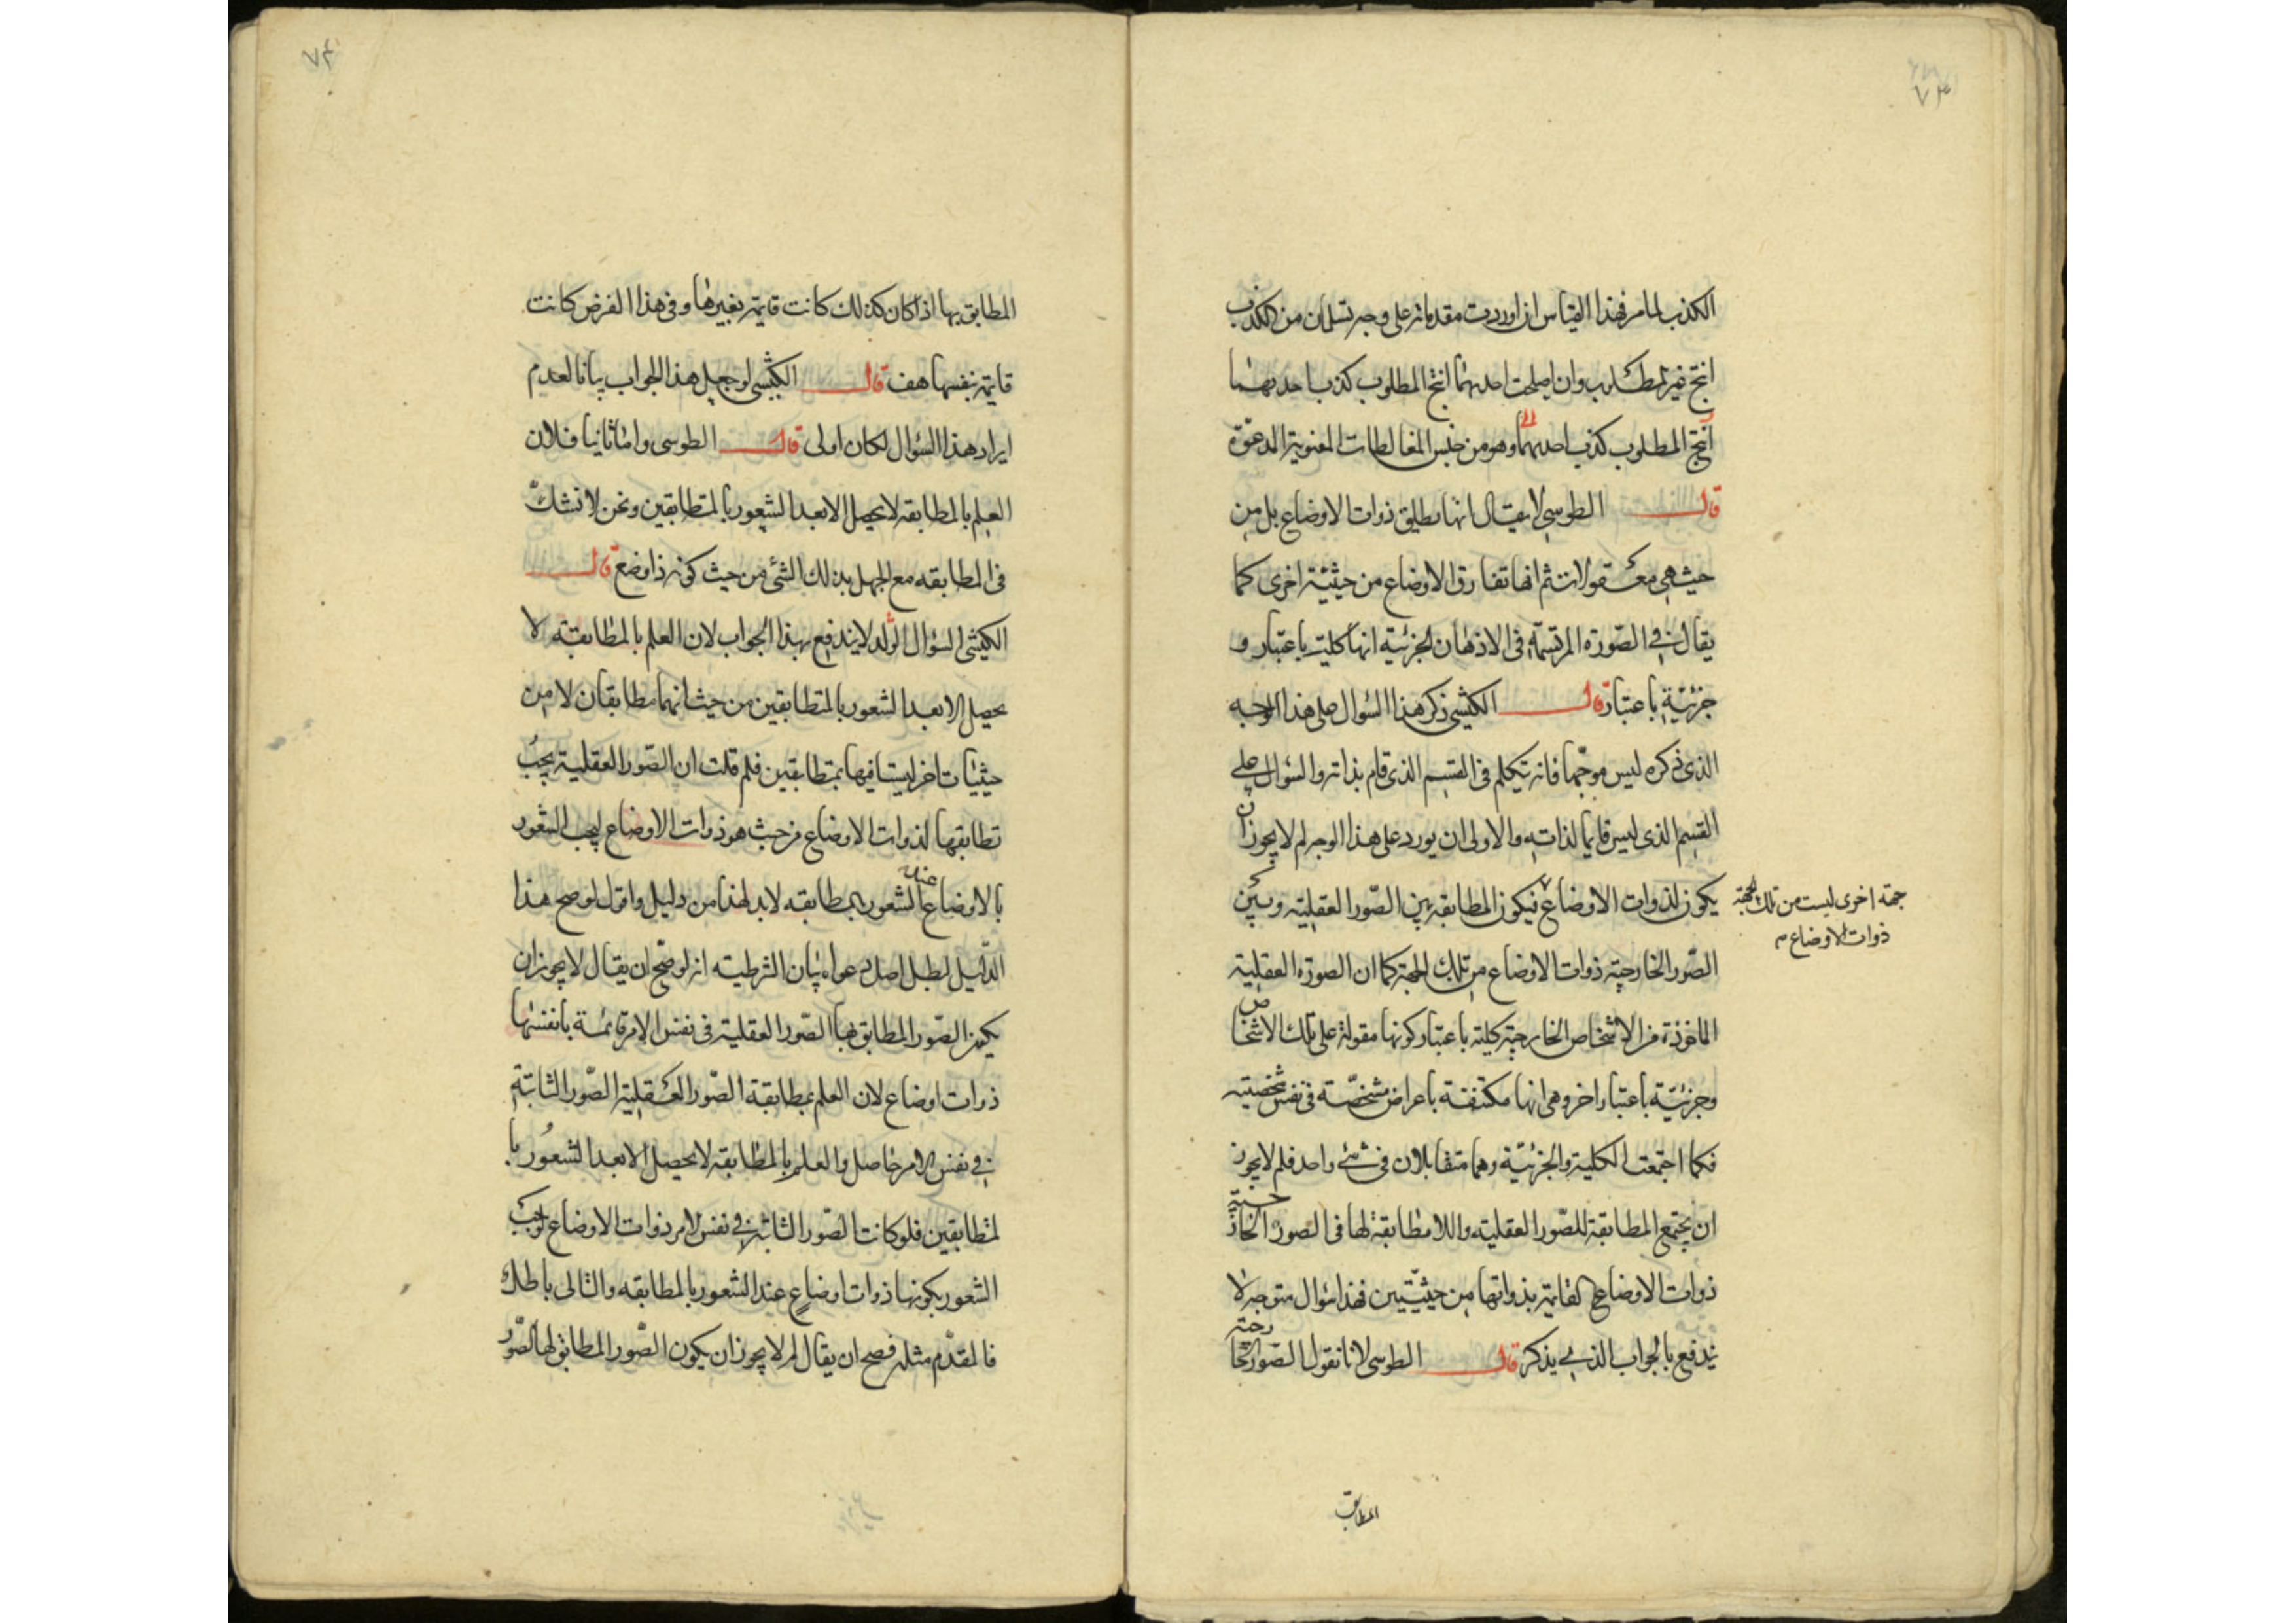 ٧٣
الكذب لما مر فهذا القياس ان اوردت مقدماته على وجه تسلمان من الكذب
انتج غير المطلوب وان اصلحت احديهما انتج المطلوب كذب احديهما
انتج المطلوب كذب احديهما وهو من جنس المغالطات المعنوية المدعوة
قال الطوسي لا يقال انها تطابق ذوات الاوضاع بل من
حيث هي معقولات ثم انها تفارق الاوضاع من حيثية اخرى كما
يقال في الصورة المرتسمة في الاذهان الجزئية انها كلية باعتبار و
جزئية باعتبار قال الكيشي ذكر هذا السؤال على هذا الوجه
الذي ذكره ليس موجها فانه تكلم في القسم الذي قام بذاته والسؤال على
القسم الذي ليس قايما لذاته والاولى ان يورد على هذا الوجه لم لا يجوز ان
يكون لذوات الاوضاع فيكون المطابقة بين الصور العقلية وبين
جهة اخرى ليست من تلك الجهة
ذوات الاوضاع
الصور الخارجية ذوات الاوضاع من تلك الجهة كما ان الصورة العقلية
الماخوذة من الاشخاص الخارجية كلية باعتبار كونها مقولة على تلك الاشخاص
وجزئية باعتبار اخر وهي انها مكتنفة باعراض مشخصة في نفس شخصيته
فكما اجتمعت الكلية والجزئية وهما متقابلان في شئ واحد فلم لا يجوز
ان يجتمع المطابقة للصور العقلية واللا مطابقة لها في الصور الخارجية
ذوات الاوضاع القايمة بذواتها من حيثيتين فهذا سؤال متوجه لا
يندفع بالجواب الذي يذكر قال الطوسي لانا نقول الصور الخارجية
المطابق
٧٤
المطابق بها اذا كان كذلك كانت قايمة بغيرها وفي هذا الفرض كانت
قايمة بنفسها هف قال الكيشي لو جعل هذا الجواب بيانا لعدم
ايراد هذا السؤال لكان اولى قال الطوسي واما ثانيا فلان
العلم بالمطابقه لا يحصل الا بعد الشعور بالمتطابقين ونحن لا نشك
في المطابقه مع الجهل بذلك الشئ من حيث كونه ذا وضع قال
الكيشي السؤال الوارد لا يندفع بهذا الجواب لان العلم بالمطابقة لا
يحصل الا بعد الشعور بالمتطابقين من حيث انهما مطابقان لا من
حيثيات اخر ليستا فيها بمتطابقين فلم قلت ان الصور العقلية يجب
تطابقها لذوات الاوضاع من حيث هو ذوات الاوضاع ليجب الشعور
بالاوضاع عند الشعور بالمطابقه لا بد لهذا من دليل واقول لو صح هذا
الدليل لبطل اصل دعواه بيان الشرطيه انه لو صح ان يقال لا يجوز ان
يكون الصور المطابق بها الصور العقلية في نفس الامر قائمة بانفسها
ذوات اوضاع لان العلم بمطابقة الصور العقلية الصور الثابتة
في نفس الامر حاصل والعلم بالمطابقه لا يحصل الا بعد الشعور با
لمتطابقين فلو كانت الصور الثابتة في نفس الامر ذوات الاوضاع لوجب
الشعور بكونها ذوات اوضاع عند الشعور بالمطابقه والتالي باطل
فالمقدم مثله فصح ان يقال لم لا يجوز ان يكون الصور المطابق لها الصور